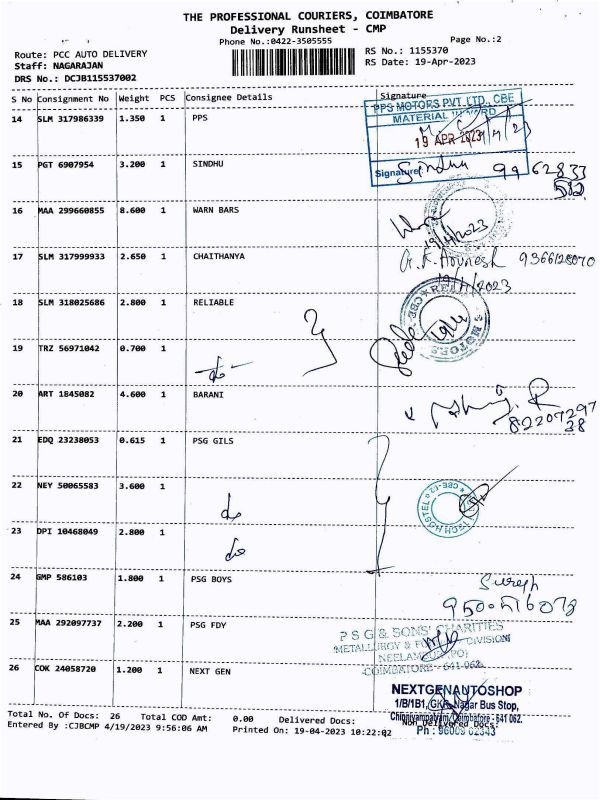 THE PROFESSIONAL COURIERS, COIMBATORE
Delivery Runsheet - CMP
Phone No.:0422-3505555 Page No.:2
Route: PCC AUTO DELIVERY RS No.: 1155370
Staff: NAGARAJAN RS Date: 19-Apr-2023
DRS No.: DCJB115537002
S No Consignment No Weight PCS Consignee Details Signature
PPS MOTORS PVT. LTD., CBE
MATERIAL INWARD
14 SLM 317986339 1.350 1 PPS
19 APR 2023
Signature
15 PGT 6907954 3.200 1 SINDHU Sindhu 99 62833
582
16 MAA 299660855 8.600 1 WARN BARS
19/4/2023
17 SLM 317999933 2.650 1 CHAITHANYA 9366128070
19/4/2023
18 SLM 318025686 2.800 1 RELIABLE 19/4
MOTORS CBE
19 TRZ 56971042 0.700 1 do
20 ART 1845082 4.600 1 BARANI
82207297
38
21 EDQ 23238053 0.615 1 PSG GILS
22 NEY 50065583 3.600 1 do
23 DPI 10468049 2.800 1 do
24 GMP 586103 1.800 1 PSG BOYS Suresh
25 MAA 292097737 2.200 1 PSG FDY
P S G & SONS' CHARITIES
METALLURGY & FOUNDRY DIVISION
COIMBATORE - 641 062
26 COK 24058720 1.200 1 NEXT GEN
NEXTGENAUTOSHOP
1/B/1B1, GKR Nagar Bus Stop,
Chinniyampalayam, Coimbatore - 641 062.
Ph : 96009 62343
Total No. Of Docs: 26 Total COD Amt: 0.00 Delivered Docs: Non Delivered Docs:
Entered By :CJBCMP 4/19/2023 9:56:06 AM Printed On: 19-04-2023 10:22:02